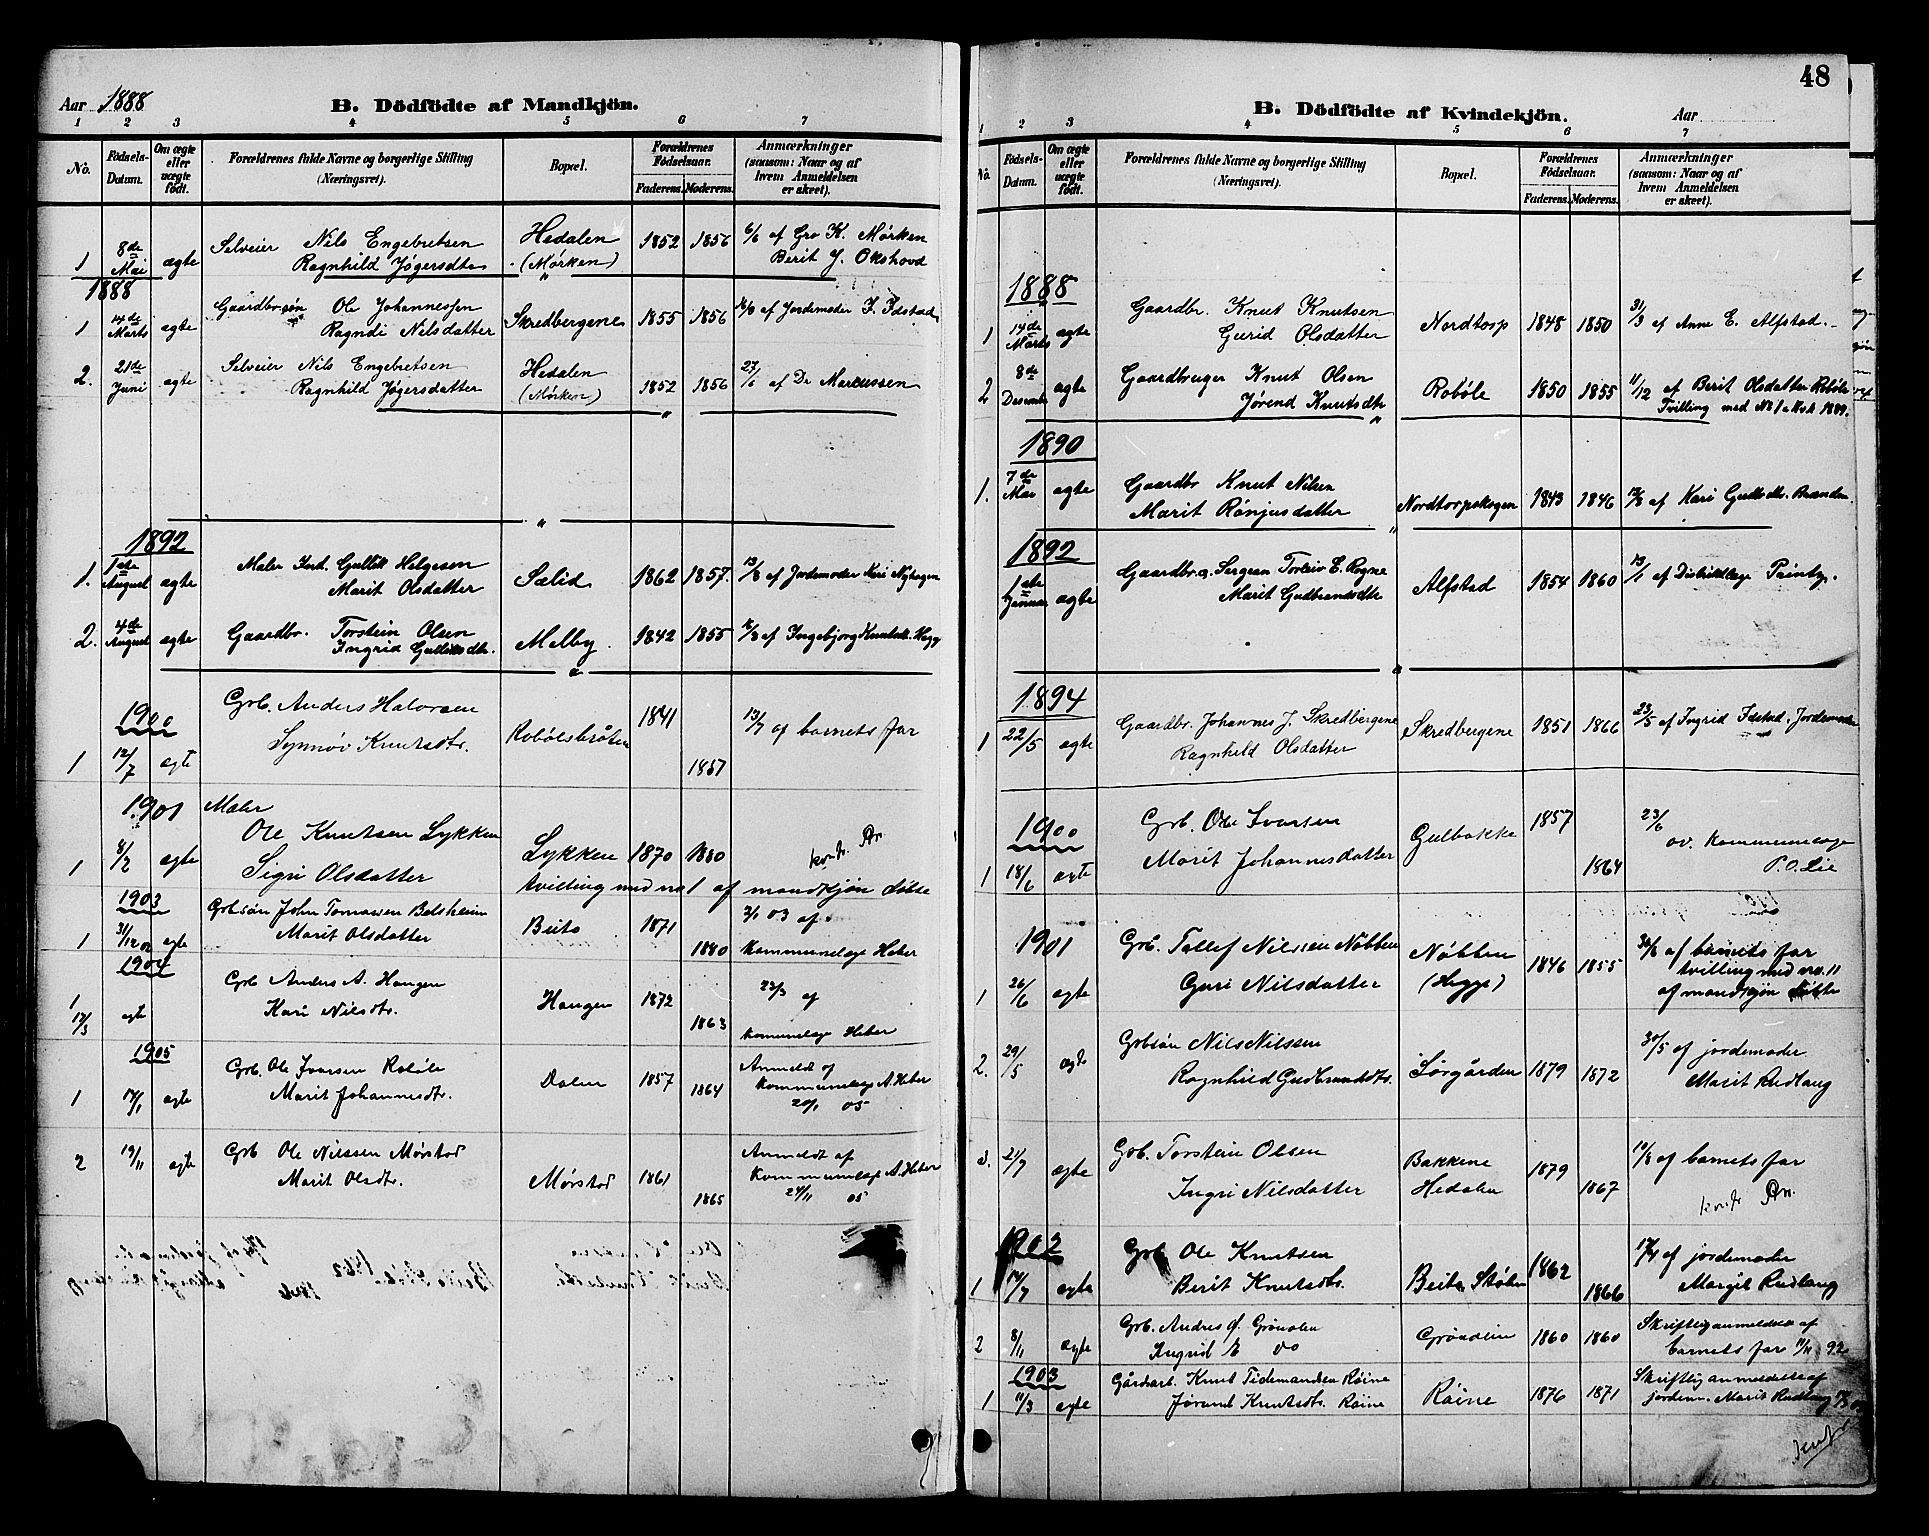 Aar 1888
B. Dödfödte af Mandkjön.
1 2 3 4 5 6 7
No.
Födsels-Datum.
Om ægte eller uægte födt.
Forældrenes fulde Navne og borgerlige Stilling
(Næringsvei).
Bopæl.
Forældrenes Födselsaar.
Faderens. Moderens.
Anmærkninger
(saasom: Naar og af
hvem Anmeldelsen
er skeet).
1 8de Mai ægte Selveier Nils Engebretsen Hedalen 1852 1856 6/6 af Gro K. Mørken
Ragnhild Jøgersdtr (Mørken) Berit J. Okshovd
1888
1 14de Marts ægte Gaardbr.søn Ole Johannessen Skredbergene 1855 1856 af Jordemoder I. Idstad
Ragndi Nilsdatter
2. 21de Juni ægte Selveier Nils Engebretsen Hedalen 1852 1856 27/6 af Dr Marcussen
Ragnhild Jøgersdatter (Mørken)
1892
1. 1ste August ægte Maler Gullik Helgesen Sælid 1862 1857. 13/8 af Jordemoder Kari Nyhagen
Marit Olsdatter
2. 4de August ægte Gaardbr. Torstein Olsen Melby. 1842 1855 af Ingebjorg Knutsdt. Hegg
Ingrid Gulliksdtr.
1900
1 12/7 ægt Grb. Anders Halvorsen Robølsbråten 1841 1857 13/7 af barnets far
Synnøv Knutsdtr.
1901
1 8/2 ægte Maler
Ole Knutsen Lykken Lykken 1870 1880 kontr. An
Sigri Olsdatter tvilling med no 1 af mandkjøn fødte
1903
1 31/12 02 ægte Grbsøn John Tomassen Belsheim Beito 1871 1880 3/1 03 af
Marit Olsdatter kommunelæge Heber
1904
1 12/3 ægt Grb Anders A. Haugen Haugen 1872 1863 23/3 af
Kari Nilsdtr. kommunelæge Heber
1905
1 17/1 ægte Grb. Ole Ivarsen Robøle Dalen 1857 1864 Anmeldt af
Marit Johannesdtr. kommunelæge A. Heber
20/1 05
2 19/11 ægte Grb Ole Nilssen Mørstad Mørstad 1861 1865 Anmeldt af
Marit Olsdtr. kommunelæge A. Heber
24/11 05
48
B. Dödfödte af Kvindekjön.
Aar
1 2 3 4 5 6 7
No.
Födsels-Datum.
Om ægte eller uægte födt.
Forældrenes fulde Navne og borgerlige Stilling
(Næringsvei).
Bopæl.
Forældrenes Födselsaar.
Faderens. Moderens.
Anmærkninger
(saasom: Naar og af
hvem Anmeldelsen
er skeet).
1888
1 14de Marts ægte Gaardbr. Knut Knutsen Nordtorp 1848 1850 31/3 af Anne E. Alfstad.
Gurid Olsdatter
2 8de Decembr ægte Gaardbruger Knut Olsen Robøle 1850 1855 11/12 af Berit Olsdatter Robøle
Jørend Knutsdtr Tvilling med No 1 a Kvk 1889.
1890
1. 7de Mai ægte Gaardbr Knut Nilsen Nordtorpskogen 1843 1846 af Kari Gullsdtr. Branden
Marit Rønjusdatter
1892
1 1ste Januar ægte Gaardbr. og Sergean Torleiv E. Rogne Alfstad 1854 1860 13/1 af Distriktlæge Printz.
Marit Gudbrandsdtr
1894
1 22/5 ægte Gaardbr. Johannes J. Skredbergene Skredbergene 1851 1866 23/5 af Ingrid Idstad, Jordemoder
Ragnhild Olsdatter
1900
1 18/6 ægt Grb. Ole Ivarsen Gulbakke 1857 1864 23/6
Marit Johannesdatter ov. kommunelæge
P. O. Lie
1901
1 26/6 ægte Grb. Tollef Nilssen Nøbben Nøbben 1846 1855 30/6 af barnets far
Guri Nilsdatter (Hegge) tvilling med no. 11
af mandkjøn fødte
2. 29/5 ægt Grbsøn Nils Nilssen Sørgården 1879 1872 30/5 af jordemoder
Ragnhild Gudbrandsdtr. Marit Rudlang
3. 21/7 ægte Grb. Torstein Olsen Bakkene 1879 1867 10/8 af barnets far
Ingri Nilsdatter Hedalen kontr. An.
1902
1 14/7 ægte Grb Ole Knutsen Beito Støle 1862 1866 17/7 af jordemoder
Berit Knutsdtr. Margit Rudlang
2 8/11 ægte Grb. Andres O. Grønolen Grønolen 1860 1860 Skriftlig anmeldelse af
Ingrid E do barnets far 11/11 92
1903
1 11/3 ægte Gårdarb. Knut Tidemandsen Røine Røine 1876 1871 Skriftlig anmeldelse af
Jørand Knutsdtr. Røine jordem. Marit Rudlang
kontr